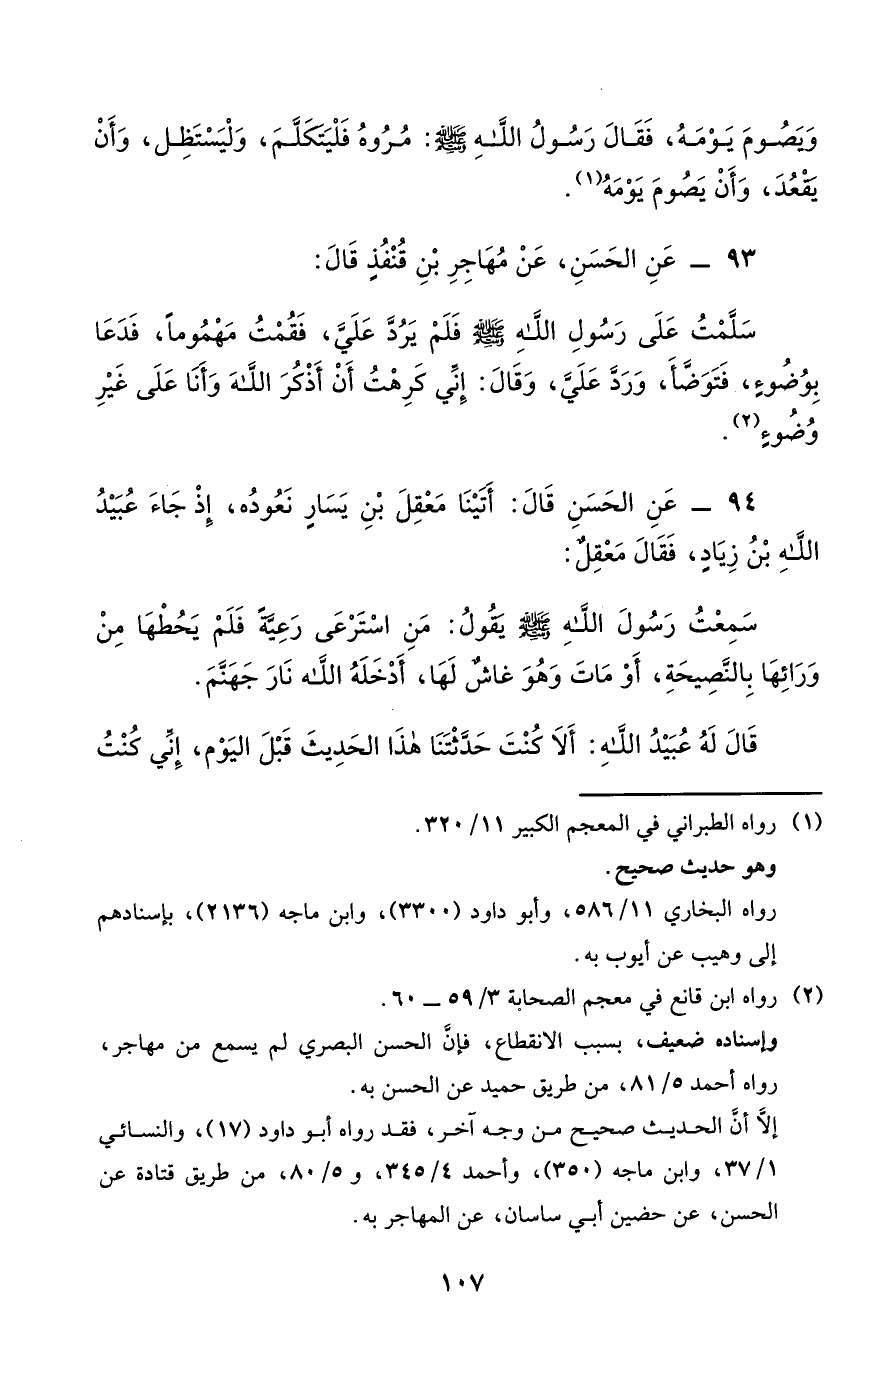 وَيَصُومَ يَوْمَهُ، فَقَالَ رَسُولُ اللَّهِ ﷺ: مُرُوهُ فَلْيَتَكَلَّمَ، وَلْيَسْتَظِل، وَأَنْ
يَقْعُدَ، وَأَنْ يَصُومَ يَوْمَهُ(١).
٩٣ ــ عَنِ الحَسَنِ، عَنْ مُهَاجِرِ بْنِ قُنْفُذٍ قَالَ:
سَلَّمْتُ عَلَى رَسُولِ اللَّهِ ﷺ فَلَمْ يَرُدَّ عَلَيَّ، فَقُمْتُ مَهْمُوماً، فَدَعَا
بِوُضُوءٍ، فَتَوَضَّأَ، وَرَدَّ عَلَيَّ، وَقَالَ: إِنِّي كَرِهْتُ أَنْ أَذْكُرَ اللَّهَ وَأَنَا عَلَى غَيْرِ
وُضُوءٍ(٢).
٩٤ ــ عَنِ الحَسَنِ قَالَ: أَتَيْنَا مَعْقِلَ بْنِ يَسَارٍ نَعُودُه، إِذْ جَاءَ عُبَيْدُ
اللَّهِ بْنُ زِيَادٍ، فَقَالَ مَعْقِلٌ:
سَمِعْتُ رَسُولَ اللَّهِ ﷺ يَقُولُ: مَنِ اسْتَرْعَى رَعِيَّةً فَلَمْ يَحُطْهَا مِنْ
وَرَائِهَا بِالنَّصِيحَةِ، أَوْ مَاتَ وَهُوَ غاشٌ لَهَا، أَدْخَلَهُ اللَّه نَارَ جَهَنَّمَ.
قَالَ لَهُ عُبَيْدُ اللَّهِ: أَلاَ كُنْتَ حَدَّثْتَنَا هٰذَا الحَدِيثَ قَبْلَ اليَوْم، إِنِّي كُنْتُ
(١) رواه الطبراني في المعجم الكبير ١١/ ٣٢٠.
وهو حديث صحيح.
رواه البخاري ١١/ ٥٨٦، وأبو داود (٣٣٠٠)، وابن ماجه (٢١٣٦)، بإسنادهم
إلى وهيب عن أيوب به.
(٢) رواه ابن قانع في معجم الصحابة ٣/ ٥٩ ــ ٦٠.
وإسناده ضعيف، بسبب الانقطاع، فإنَّ الحسن البصري لم يسمع من مهاجر،
رواه أحمد ٥/ ٨١، من طريق حميد عن الحسن به.
إلاَّ أنَّ الحديث صحيح من وجه آخر، فقد رواه أبو داود (١٧)، والنسائي
١/ ٣٧، وابن ماجه (٣٥٠)، وأحمد ٤/ ٣٤٥، و ٥/ ٨٠، من طريق قتادة عن
الحسن، عن حضين أبي ساسان، عن المهاجر به.
١٠٧